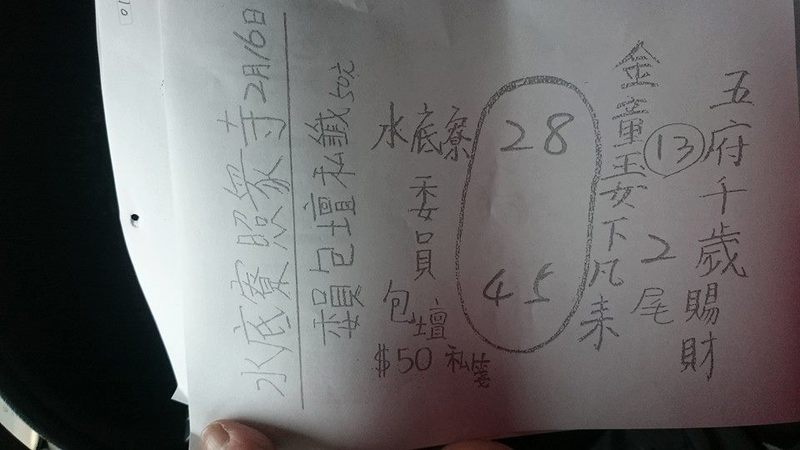 水底寮照衆寺2月16日
委員包壇私籤50元
五府千歲賜財
13
2尾
金童玉女下凡来
28
45
水底寮
委員
包壇
$50 私簽